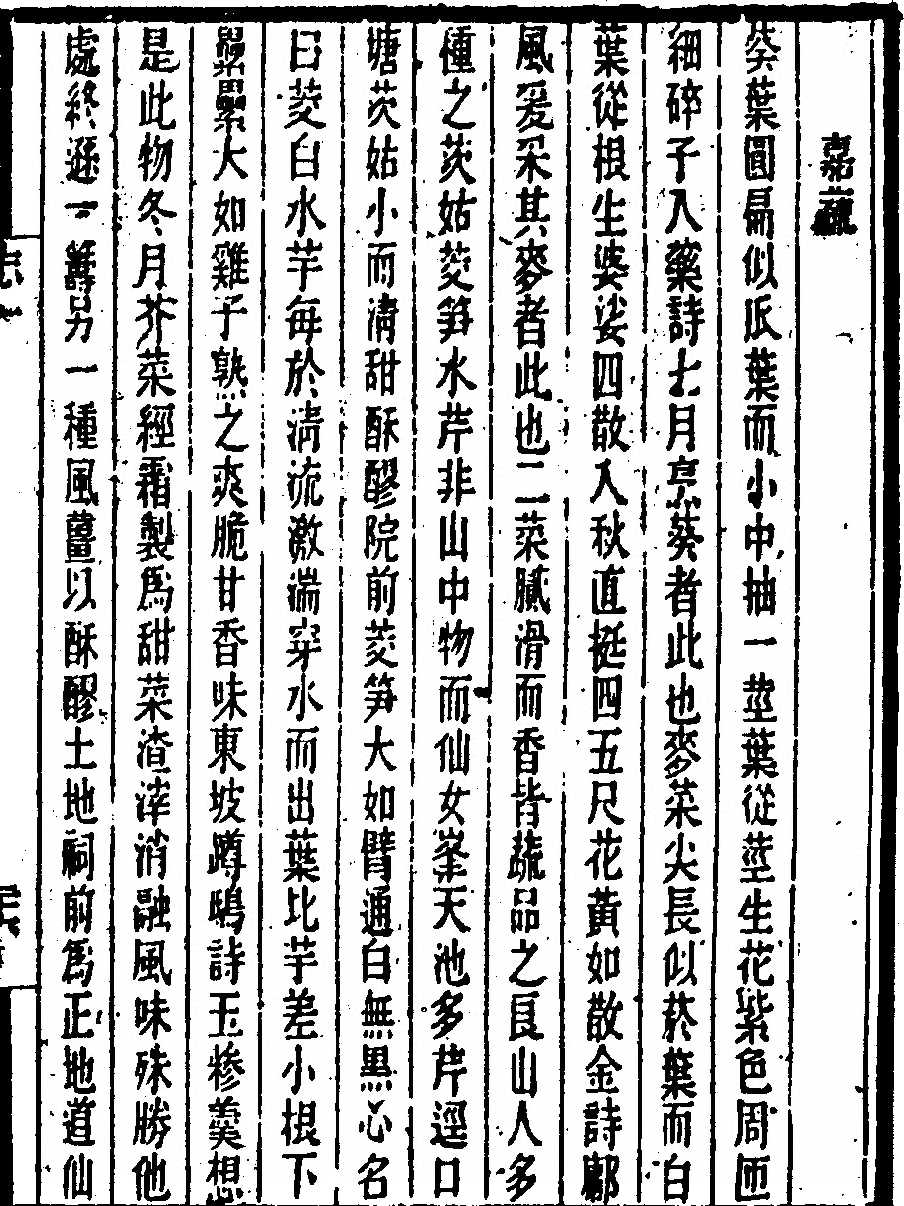 嘉蔬
葵葉圓扁似瓜葉而小中抽一莖葉從莖生花紫色周匝
細碎子入藥詩七月烹葵者此也麥菜尖長似菸葉而白
葉從根生婆娑四散入秋直挺四五尺花黃如散金詩鄘
風爰采其麥者此也二菜膩滑而香皆蔬品之良山人多
種之茨姑茭笋水芹非山中物而仙女峯天池多芹逕口
塘茨姑小而清甜酥醪院前茭笋大如臂通白無黑心名
曰茭白水芋每於清流激湍穿水而出葉比芋差小根下
纍纍大如雞子熟之爽脆甘香味東坡蹲鴟詩玉糝羹想
是此物冬月芥菜經霜製為甜菜渣滓消融風味殊勝他
處終遜一籌另一種風薑以酥醪土地祠前為正地道仙